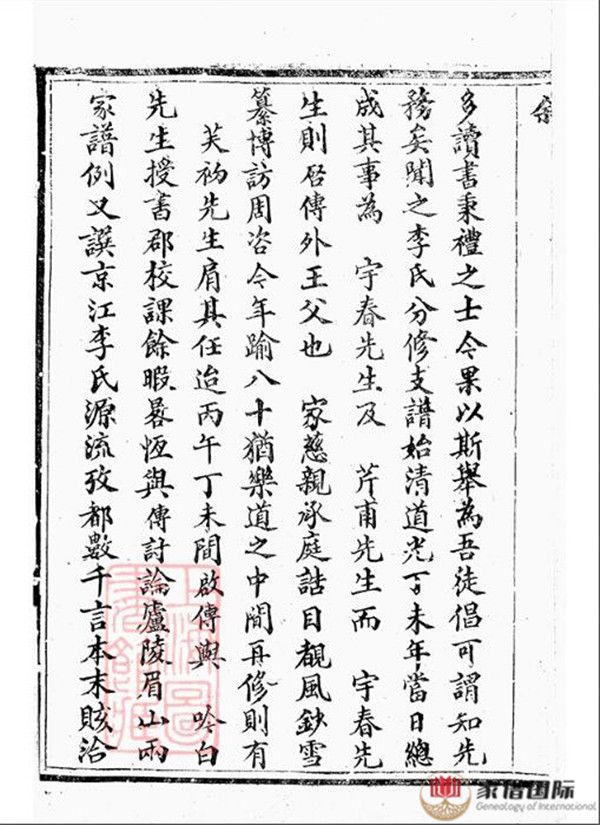 多讀書秉禮之士今果以斯舉為吾徒倡可謂知先
務矣聞之李氏分修支譜始清道光丁未年當日總
成其事為　宇春先生及　芹甫先生而　宇春先
生則啟傳外王父也　家慈親承庭誥目覩風鈔雪
纂博訪周咨今年踰八十猶樂道之中間再修則有
芙初先生肩其任迨丙午丁未間啟傳與　吟白
先生授書郡校課餘暇晷恆與傳討論廬陵眉山兩
家譜例又譔京江李氏源流攷都數千言本末賅洽
家谱国际
Genealogy of International